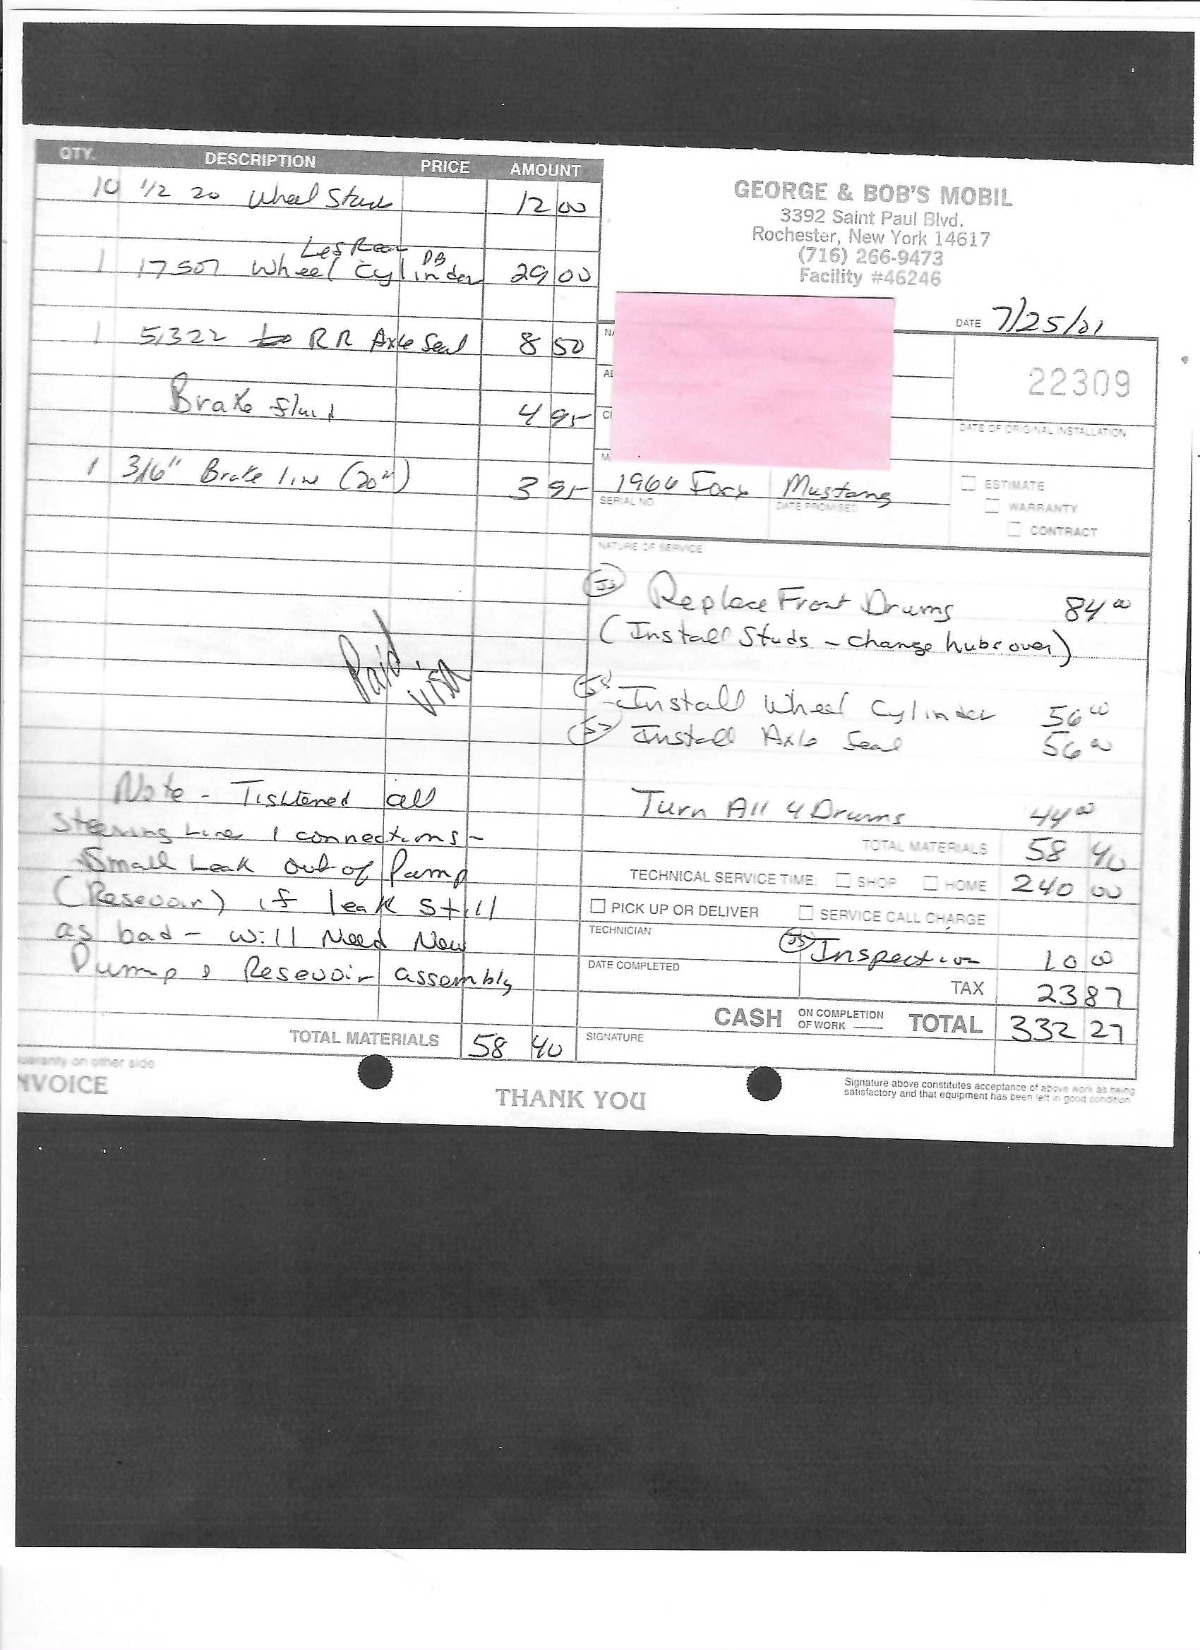 QTY. DESCRIPTION PRICE AMOUNT
10 1/2 20 Wheel Studs 12 00
Les Rear DB
1 17507 Wheel Cylinder 29 00
1 51322 RR Axle Seal 8 50
Brake fluid 4 95
1 3/16" Brake line (20") 3 95
Paid
VISA
Note - Tightened all
Steering Line / connections -
Small Leak out of Pump
(Resevoir) if leak still
as bad - will Need New
Pump & Resevoir assembly
TOTAL MATERIALS 58 40
warranty on other side
NVOICE
THANK YOU
GEORGE & BOB'S MOBIL
3392 Saint Paul Blvd.
Rochester, New York 14617
(716) 266-9473
Facility #46246
DATE 7/25/01
22309
DATE OF ORIGINAL INSTALLATION
1966 Ford Mustang
SERIAL NO. DATE PROMISED
ESTIMATE
WARRANTY
CONTRACT
NATURE OF SERVICE
Replace Front Drums 84 00
(Install Studs - change hubs over)
Install Wheel Cylinder 56 00
Install Axle Seal 56 00
Turn All 4 Drums 44 00
TOTAL MATERIALS 58 40
TECHNICAL SERVICE TIME: SHOP HOME 240 00
PICK UP OR DELIVER SERVICE CALL CHARGE
TECHNICIAN
Inspection 10 00
DATE COMPLETED
TAX 23 87
CASH ON COMPLETION OF WORK TOTAL 332 27
SIGNATURE
Signature above constitutes acceptance of above work as being
satisfactory and that equipment has been left in good condition